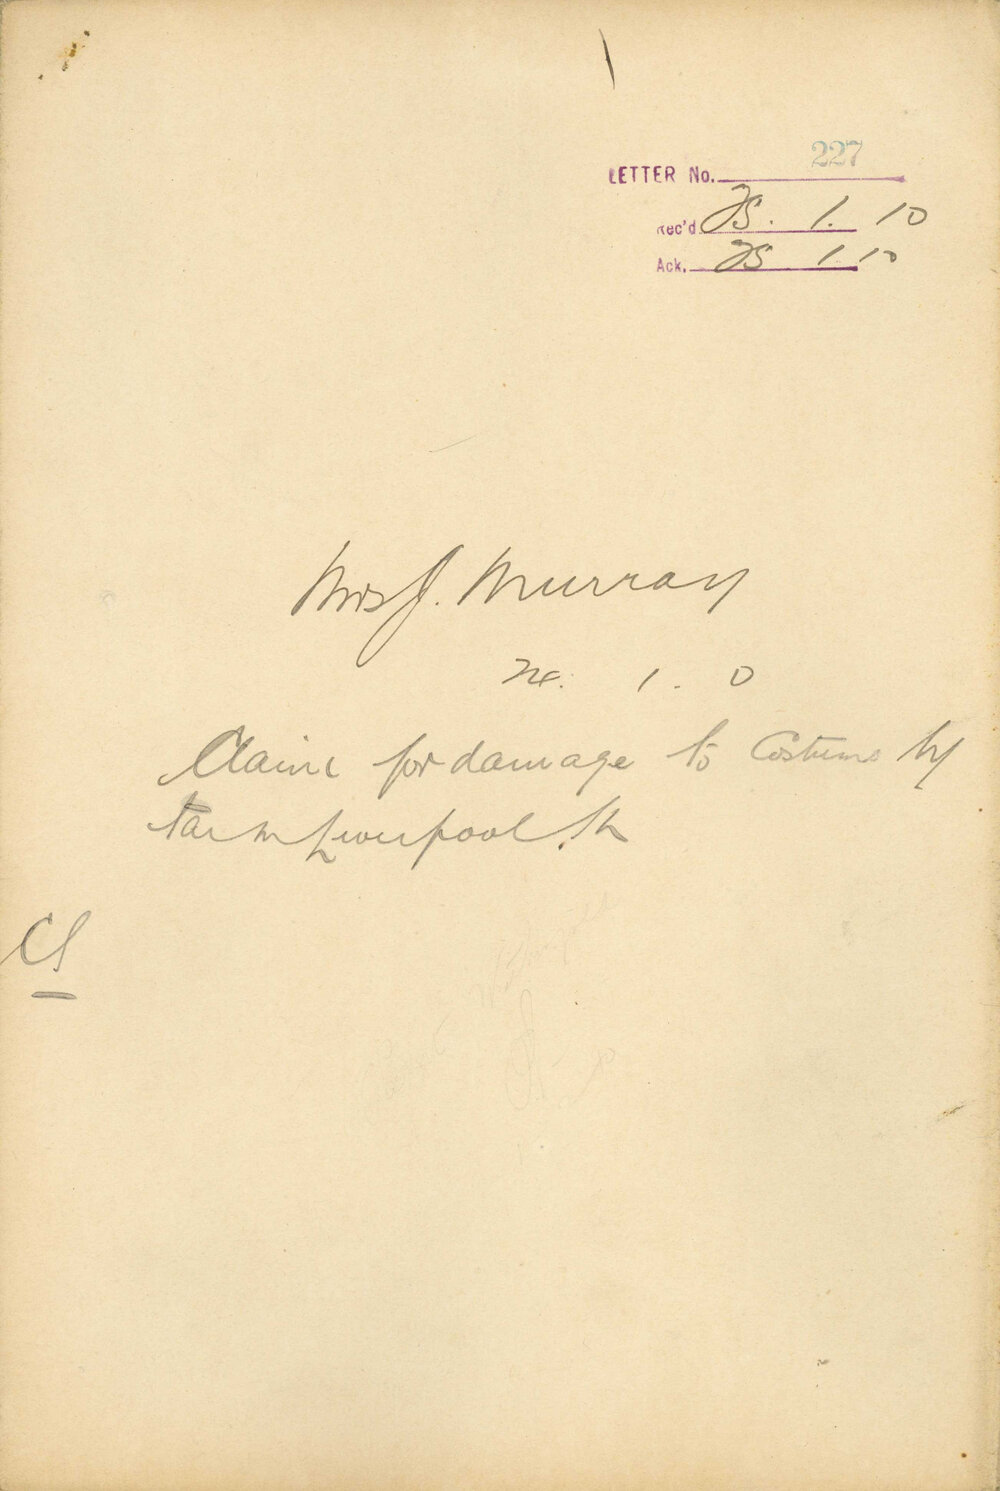 LETTER No. 227
Rec'd. 25. 1. 10
Ack. 25 1 10
Mrs J. Murray
24. 1. 0
Claim for damage to Costume by
tar in Liverpool St
CS